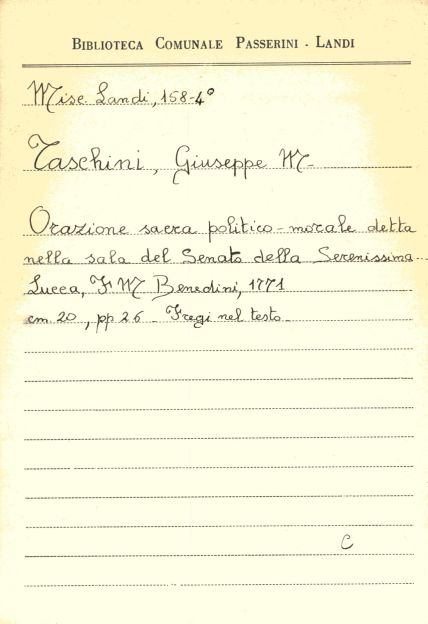 BIBLIOTECA COMUNALE PASSERINI - LANDI
Misc. Landi, 158-4°
Taschini, Giuseppe M-
Orazione sacra politico-morale detta
nella sala del Senato della Serenissima-
Lucca, F M Benedini, 1771
cm. 20, pp 26 - Fregi nel testo-
C